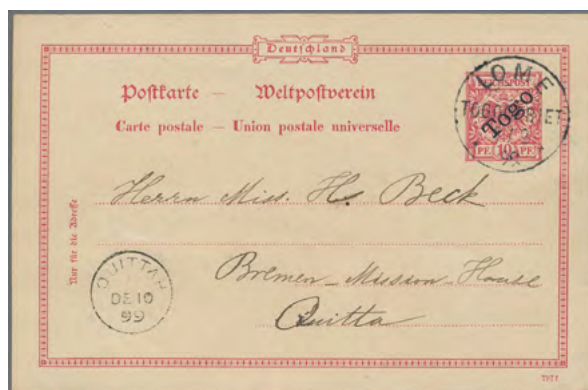 Deutschland
Postkarte — Weltpostverein
Carte postale — Union postale universelle
LOME
TOGO
REICHSPOST
Togo
PF. 10 PF.
Nur für die Adresse
Herrn Miss. H. Beck
Bremen - Mission - House
Quitta
QUITTAH
DE 10
99